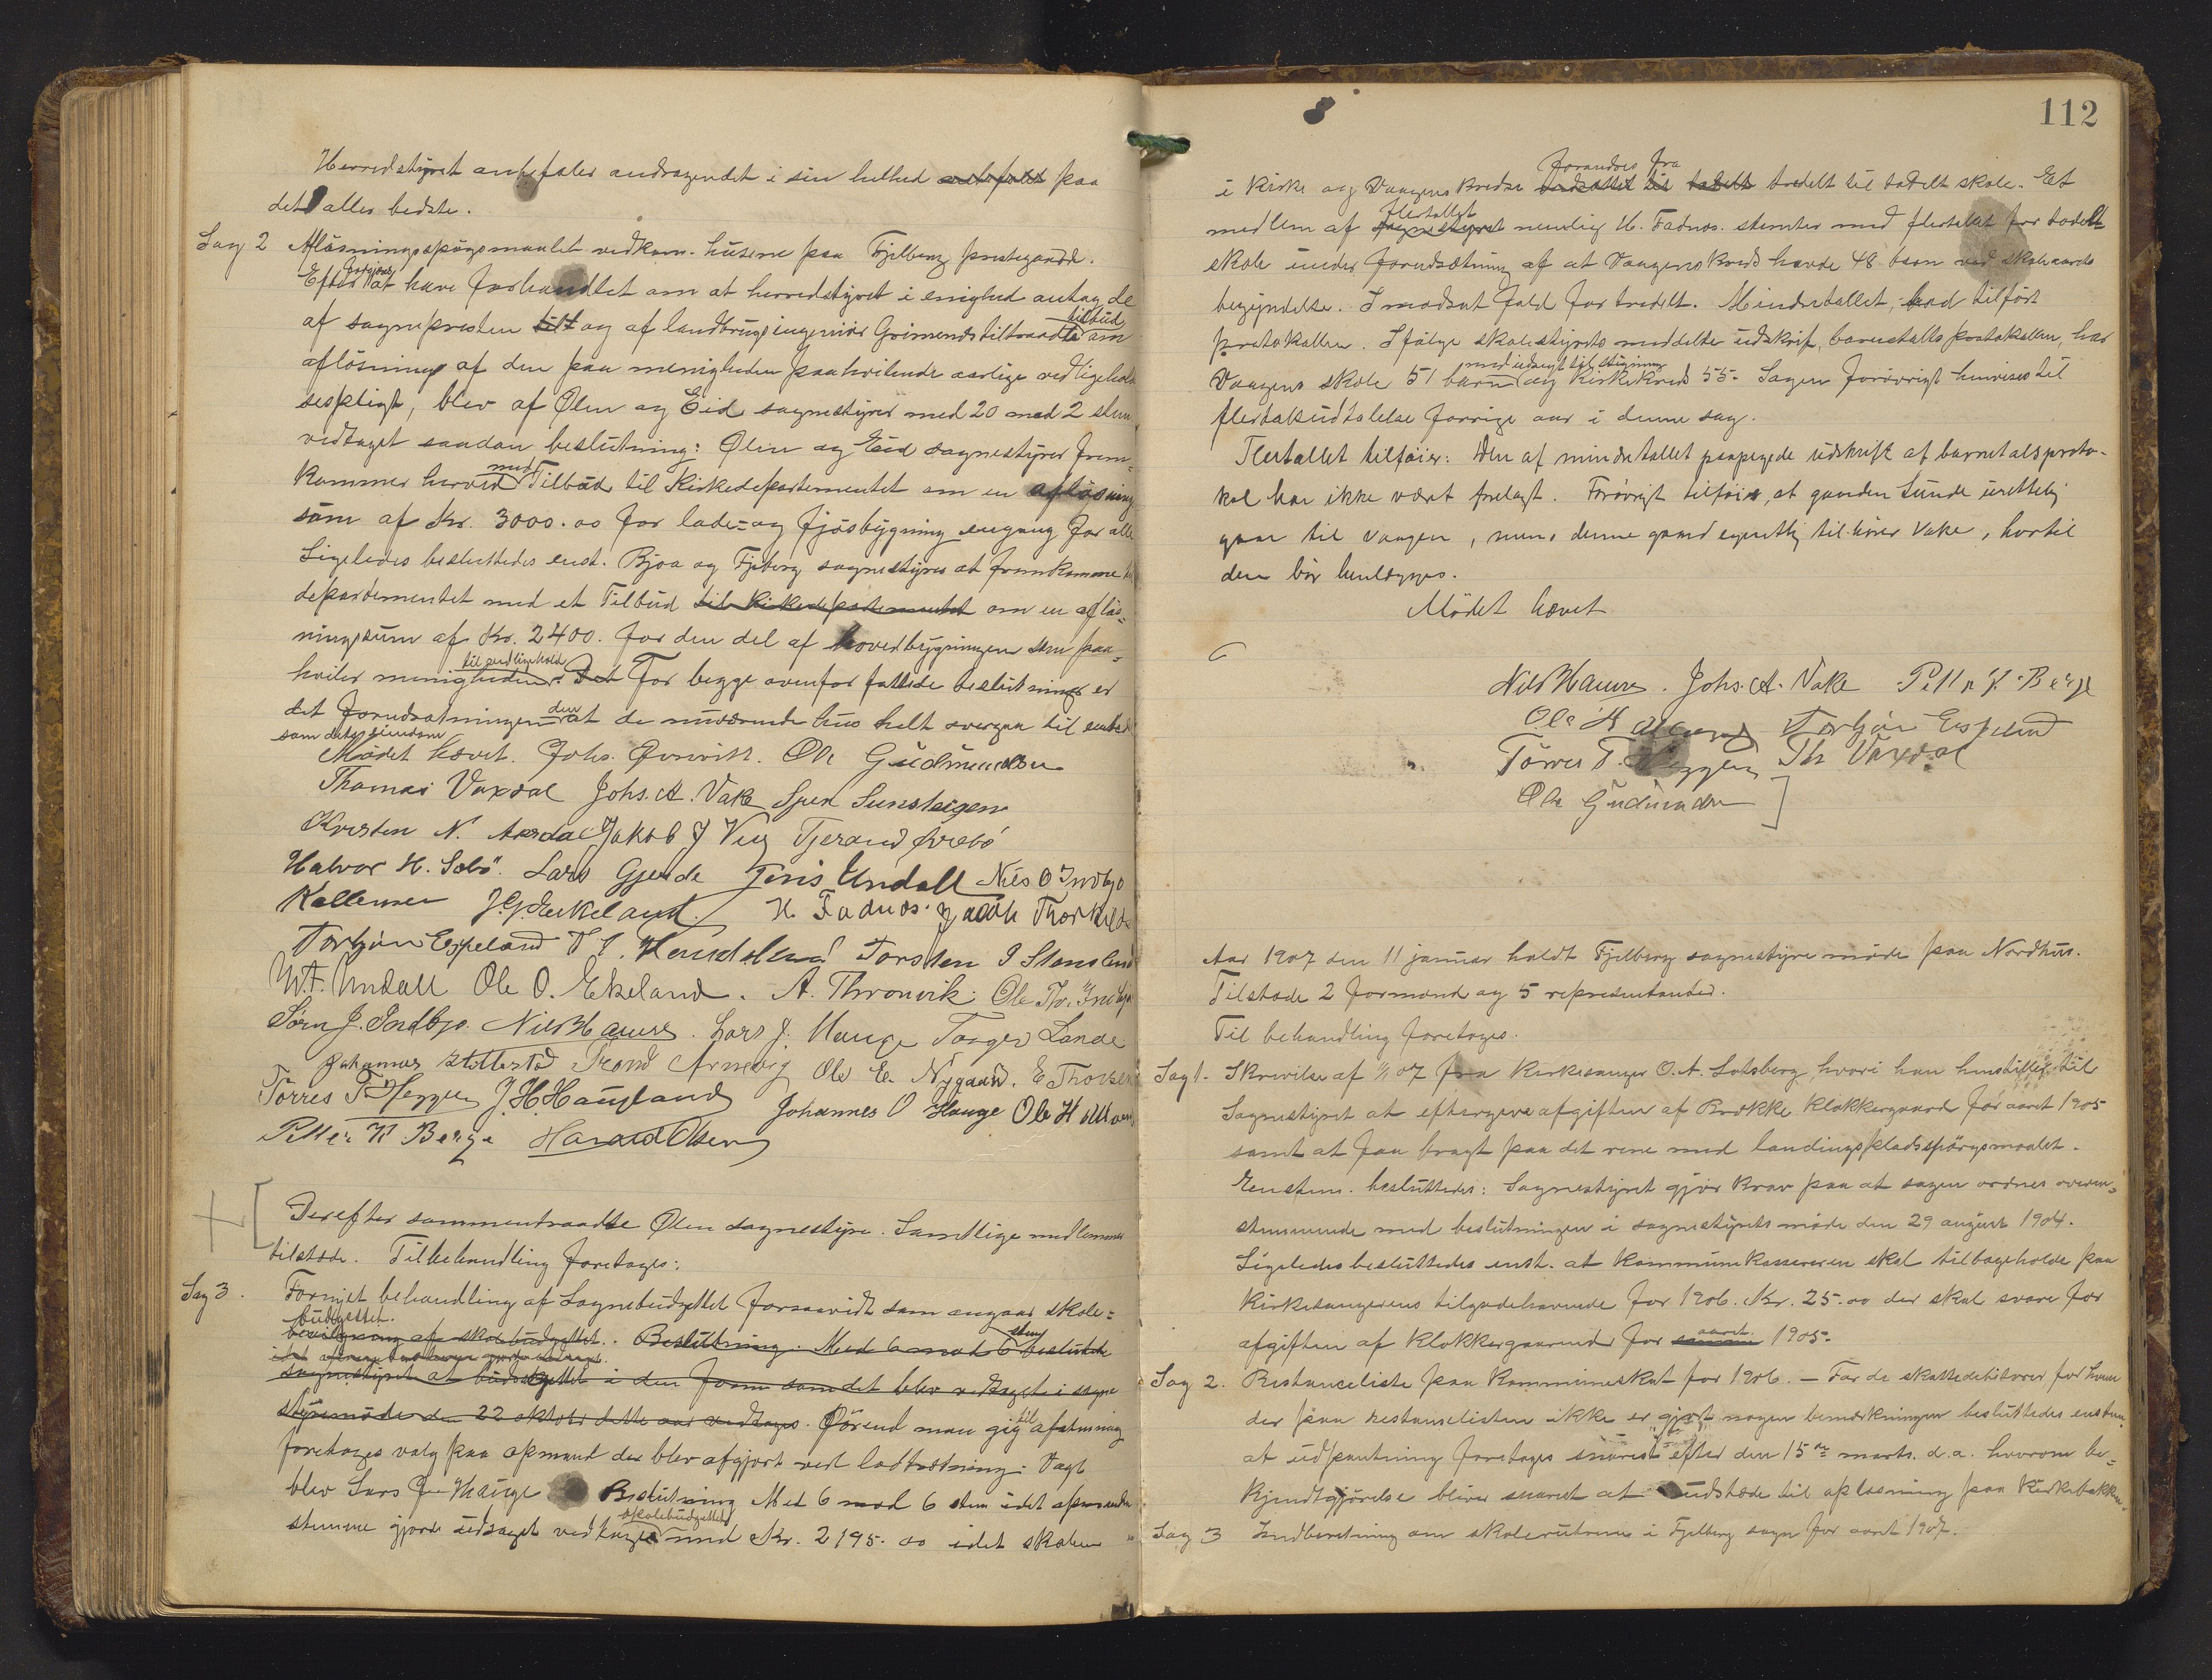 Herredstyret anbefaler andragendet i sin helhed anbefalet paa
det aller bedste.
Sag 2 Afløsningsspørgsmaalet vedkom. husene paa Fjelberg prestegaard.
Efter forgjæves at have forhandlet om at herredstyret i enighed antog de
af sognepresten og af landbrugsingeniør Grimends tiltraadte tilbud om
afløsning af den paa menigheden paahvilende aarlige vedligehold-
sespligt, blev af Ølen og Eid sognestyrer med 20 mod 2 stem.
vedtaget saadan beslutning: Ølen og Eid sognestyrer frem-
kommer herved med Tilbud til Kirkedepartementet om en afløsning
sum af Kr. 3000.00 for lade- og fjøsbygning engang for alle
Ligeledes besluttedes enst. Bjoa og Fjelberg sognestyrer at fremkomme til
departementet med et Tilbud til Kirkedepartementet om en afløs-
ningssum af Kr. 2400. for den del af hovedbygningen som paa-
hviler menigheden til vedligehold. Det For begge ovenfor fattede beslutninger er
det forudsætningen den at de nuværende hus helt overgaa til embedet
som dets eiendom
Mødet hævet. Johs. Øvrevik. Ole Gudmundsen
Thomas Vaxdal Johs. A. Vake Sjur Sunsteigen
Kristen N. Aasdal Jakob J Vig Tjerand Ørebø
Halvor H. Sebø. Lars Gjerde Tønis Undall Nils O Indbjo
Kallemen J. G. Eikeland. H. Fadnes. Jacob Thorkilds
Torbjørn Espeland Torsten J Stensland
W. T. Undall Ole O. Ekeland. A. Thronvik. Ole Th. Indbjo
Sørn J. Indbjo. Nils Hauge. Lars J. Hauge Taager Lande
Johannes Hettestad Trond Arneborg Ole E. Nygaard. E Thorsen
Tørres T. Heggen J. H. Haugland Johannes O Hauge Ole H Alvern
Petter H Berge Harald Olsen
Derefter sammentraadte Ølen sognestyre. Samtlige medlemmer
tilstede. Til behandling foretages:
Sag 3. Fornyet behandling af Sognebudgettet forsaavidt som angaar skole-
budgettet.
bevilgning af skolebudgettet. Beslutning. Med 6 mod 6 stem besluttede
sognestyret at budgettet i den form som det blev vedtaget i sogne
styremøde den 22 oktober dette aar vedtages. Førend man gig til afstemning
foretages valg paa opmand der blev afgjort ved lodtrækning. Valgt
blev Lars J. Hauge Beslutning Med 6 mod 6 stem idet opmandens
stemme gjorde udslaget vedtages skolebudgettet med Kr. 2195.00 idet skolen
112
i Kirke og Vaagens Kredse forandres fra tredelt til todelt skole. Et
medlem af flertallet nemlig H. Fadnes. stemte med flertallet for todelt
skole under forudsætning af at Vaagens kreds havde 48 barn ved skoleaarets
begyndelse. I modsat fald for tredelt. Mindretallet, bad tilført
protokollen. Ifølge skolestyrets meddelte udskrift, barnetalls protokollen, har
Vaagens skole 51 barn med udsigt til stigning og Kirkekreds 55. Sagen forøvrigt henvises til
flertalsudtalelse forrige aar i denne sag.
Flertallet tilføier: Den af mindretallet paapegede udskrift af barnetalsproto-
kol har ikke været forelagt. Forøvrigt tilføies, at gaarden Sunde urettelig
gaar til Vaagen, mens denne gaard egentlig tilhører Vake, hvortil
den bør henlægges.
Mødet hævet
Nils Hauge. Johs. A. Vake Petter H. Berge
Ole H Alvern Torbjørn Espeland
Tørres T. Heggen Th Vaxdal
Ole Gudmundsen
Aar 1907 den 11 januar holdt Fjelberg sognestyre møde paa Nordhus.
Tilstede 2 formænd og 5 repræsentanter.
Til behandling foretages.
Sag 1. Skrivelse af 1/1 07 fra Kirkesanger O. A. Lutsberg, hvori han henstiller til
Sognestyret at eftergive afgiften af Brække klokkergaard for aaret 1905
samt at faa bragt paa det rene med landingspladsspørgsmaalet.
Enstem. besluttedes: Sognestyret gjør krav paa at sagen ordnes overen-
stemmende med beslutningen i sognestyrets møde den 29 august 1904.
Ligeledes besluttedes enst. at kommunekassereren skal tilbageholde paa
Kirkesangerens tilgodehavende for 1906. Kr. 25.00 der skal svare for
afgiften af klokkergaarden for aaret 1905.
Sag 2. Restanceliste paa Kommuneskat for 1906. — For de skattedebitorer for hvem
der paa restancelisten ikke er gjort nogen bemærkninger besluttedes enstem.
at udpantning foretages snarest efter den 15de marts. d.a. hvorom be-
kjendtgjørelse bliver snarest at udstæde til oplæsning paa Kirkebakken.
Sag 3 Indberetning om skoleruterne i Fjelberg sogn for aaret 1907.